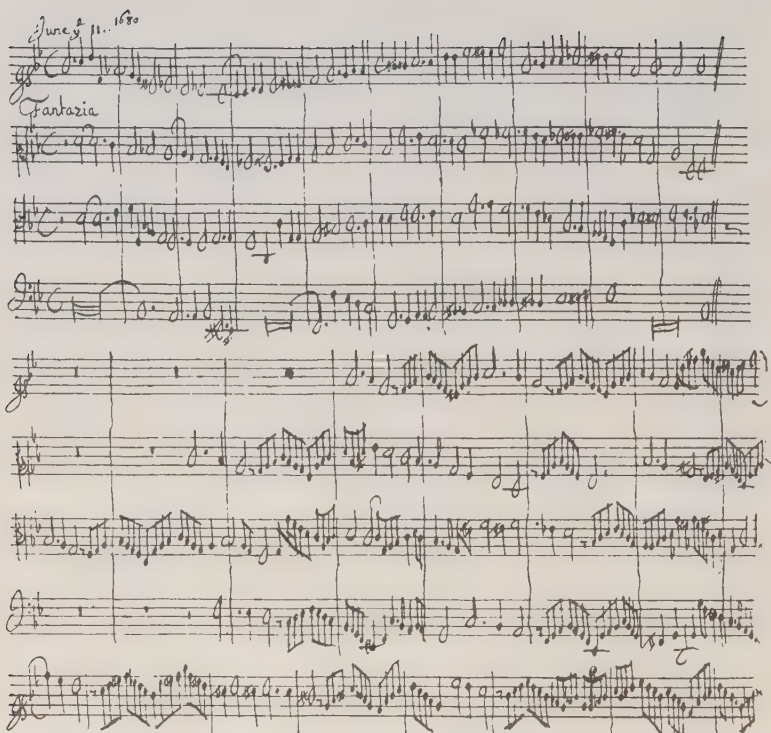 June yᵉ 11.. 1680
Fantazia